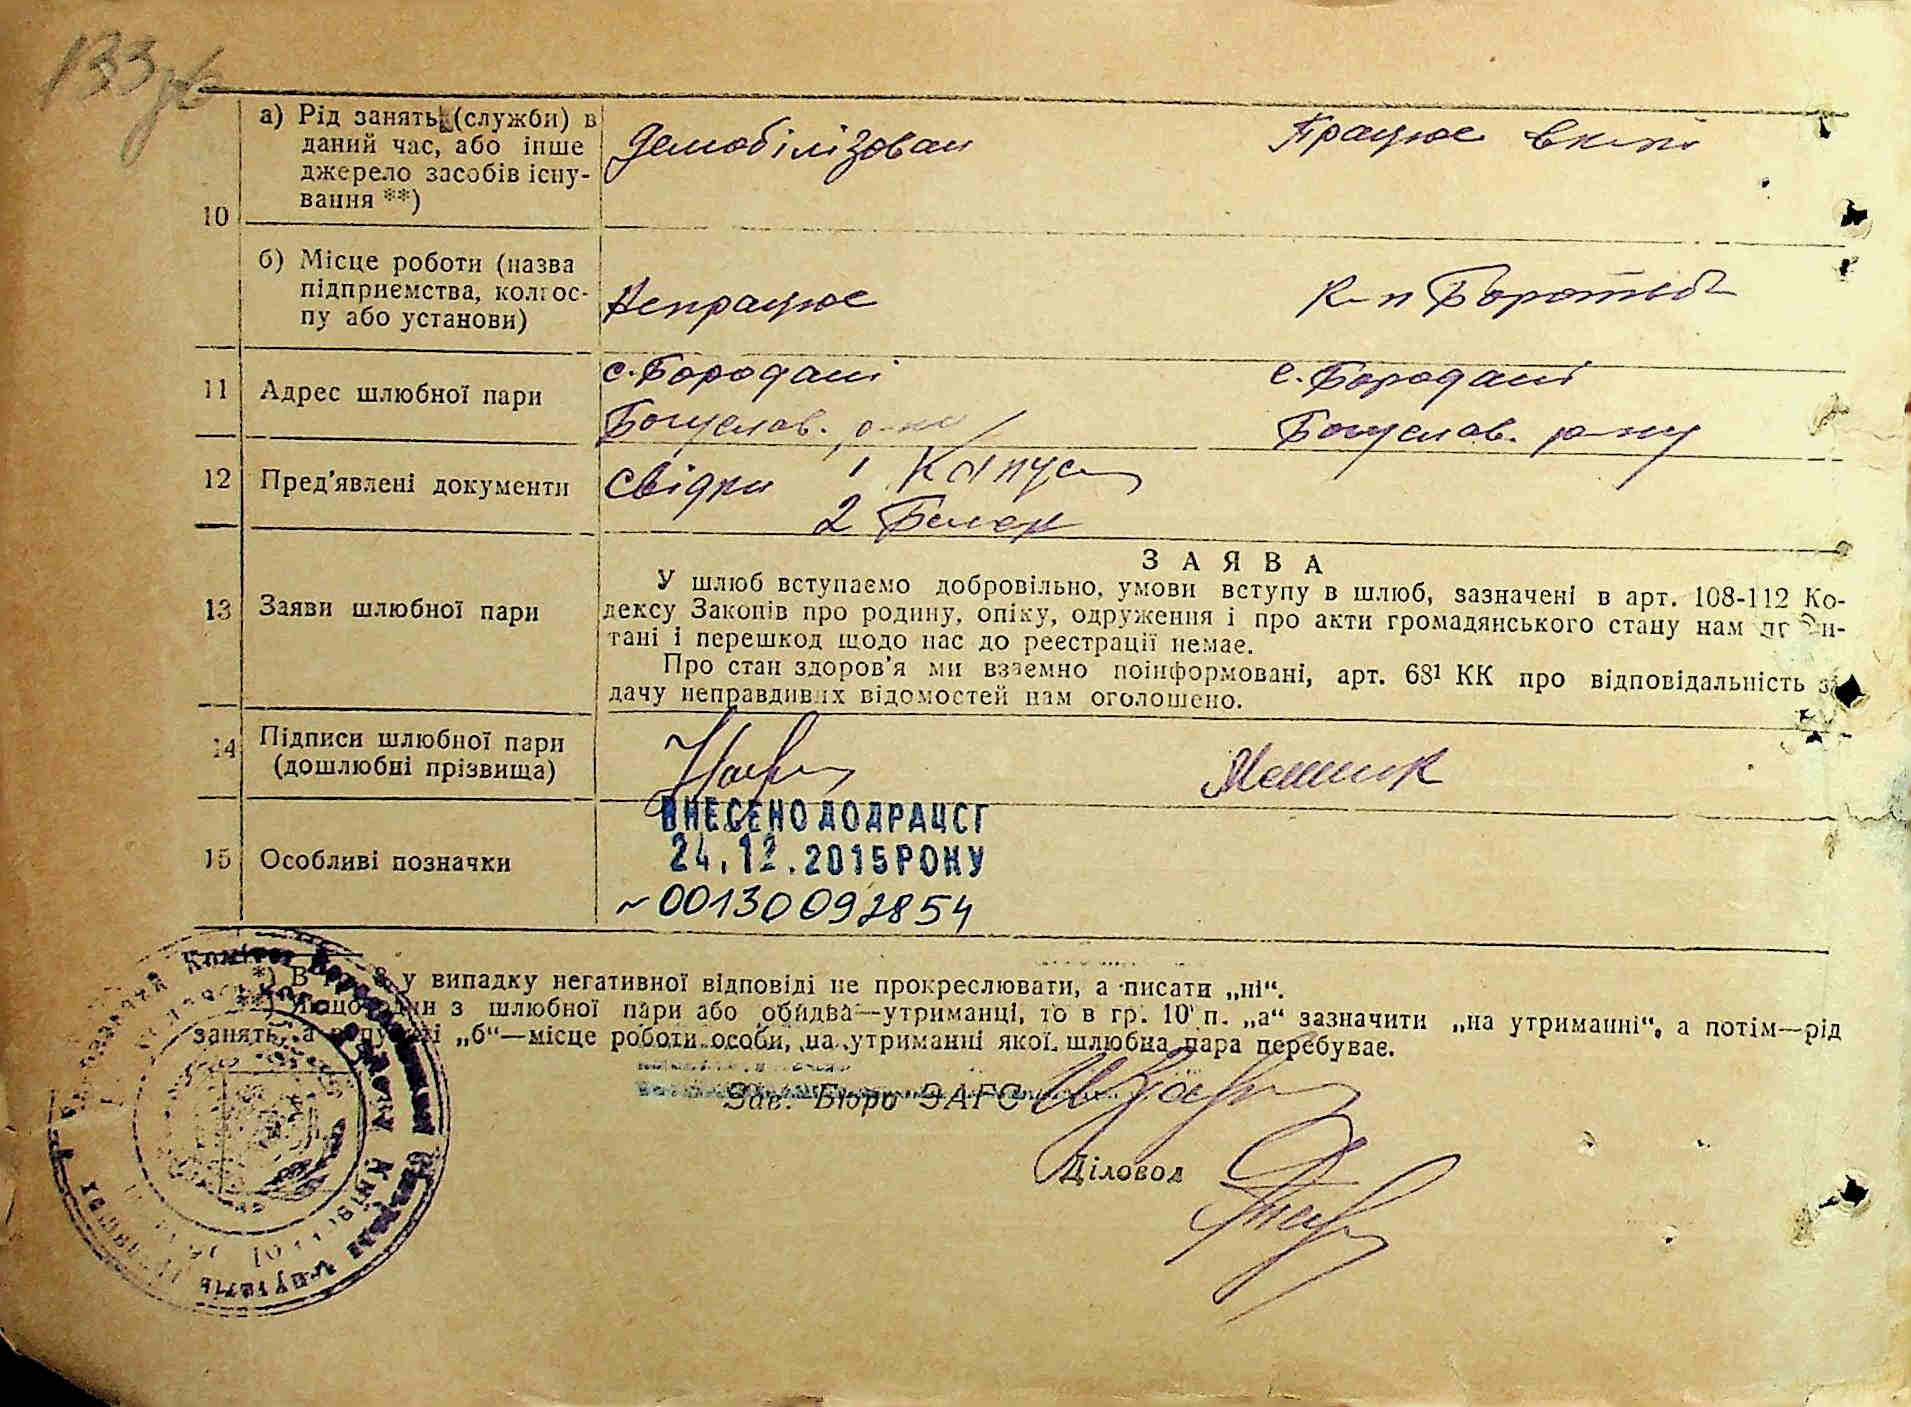 133 зв
а) Рід занять (службии) в
даний час, або інше
джерело засобів існу-
вання **)
демобілізован
Працює в к-пі
10
б) Місце роботи (назва
підприємства, колгос-
пу або установи)
Непрацює
К-п Боротьба
11
Адрес шлюбної пари
с. Бородані
Богуслав. р-ну
с. Бородані
Богуслав. р-ну
12
Пред’явлені документи
свідки 1
2
13
Заяви шлюбної пари
ЗАЯВА
У шлюб вступаємо добровільно, умови вступу в шлюб, зазначені в арт. 108-112 Ко-
дексу Законів про родину, опіку, одруження і про акти громадянського стану нам
тані і перешкод щодо нас до реестрації немає.
Про стан здоров’я ми взаємно поінформовані, арт. 68¹ КК про відповідальність за
дачу неправдивих відомостей нам оголошено.
14
Підписи шлюбної пари
(дошлюбні прізвища)
15
Особливі позначки
ВНЕСЕНО ДО ДРАЦСГ
24.12.2015 РОКУ
~00130092854
*) В у випадку негативної відповіді не прокреслювати, а писати „ні“.
Якщо один з шлюбної пари або обидва—утриманці, то в гр. 10 п. „а“ зазначити „на утриманні“, а потім—рід
занять, а в пункті „б“—місце роботи особи, на утриманні якої шлюбна пара перебуває.
Зав. Бюро ЗАГС
Діловод